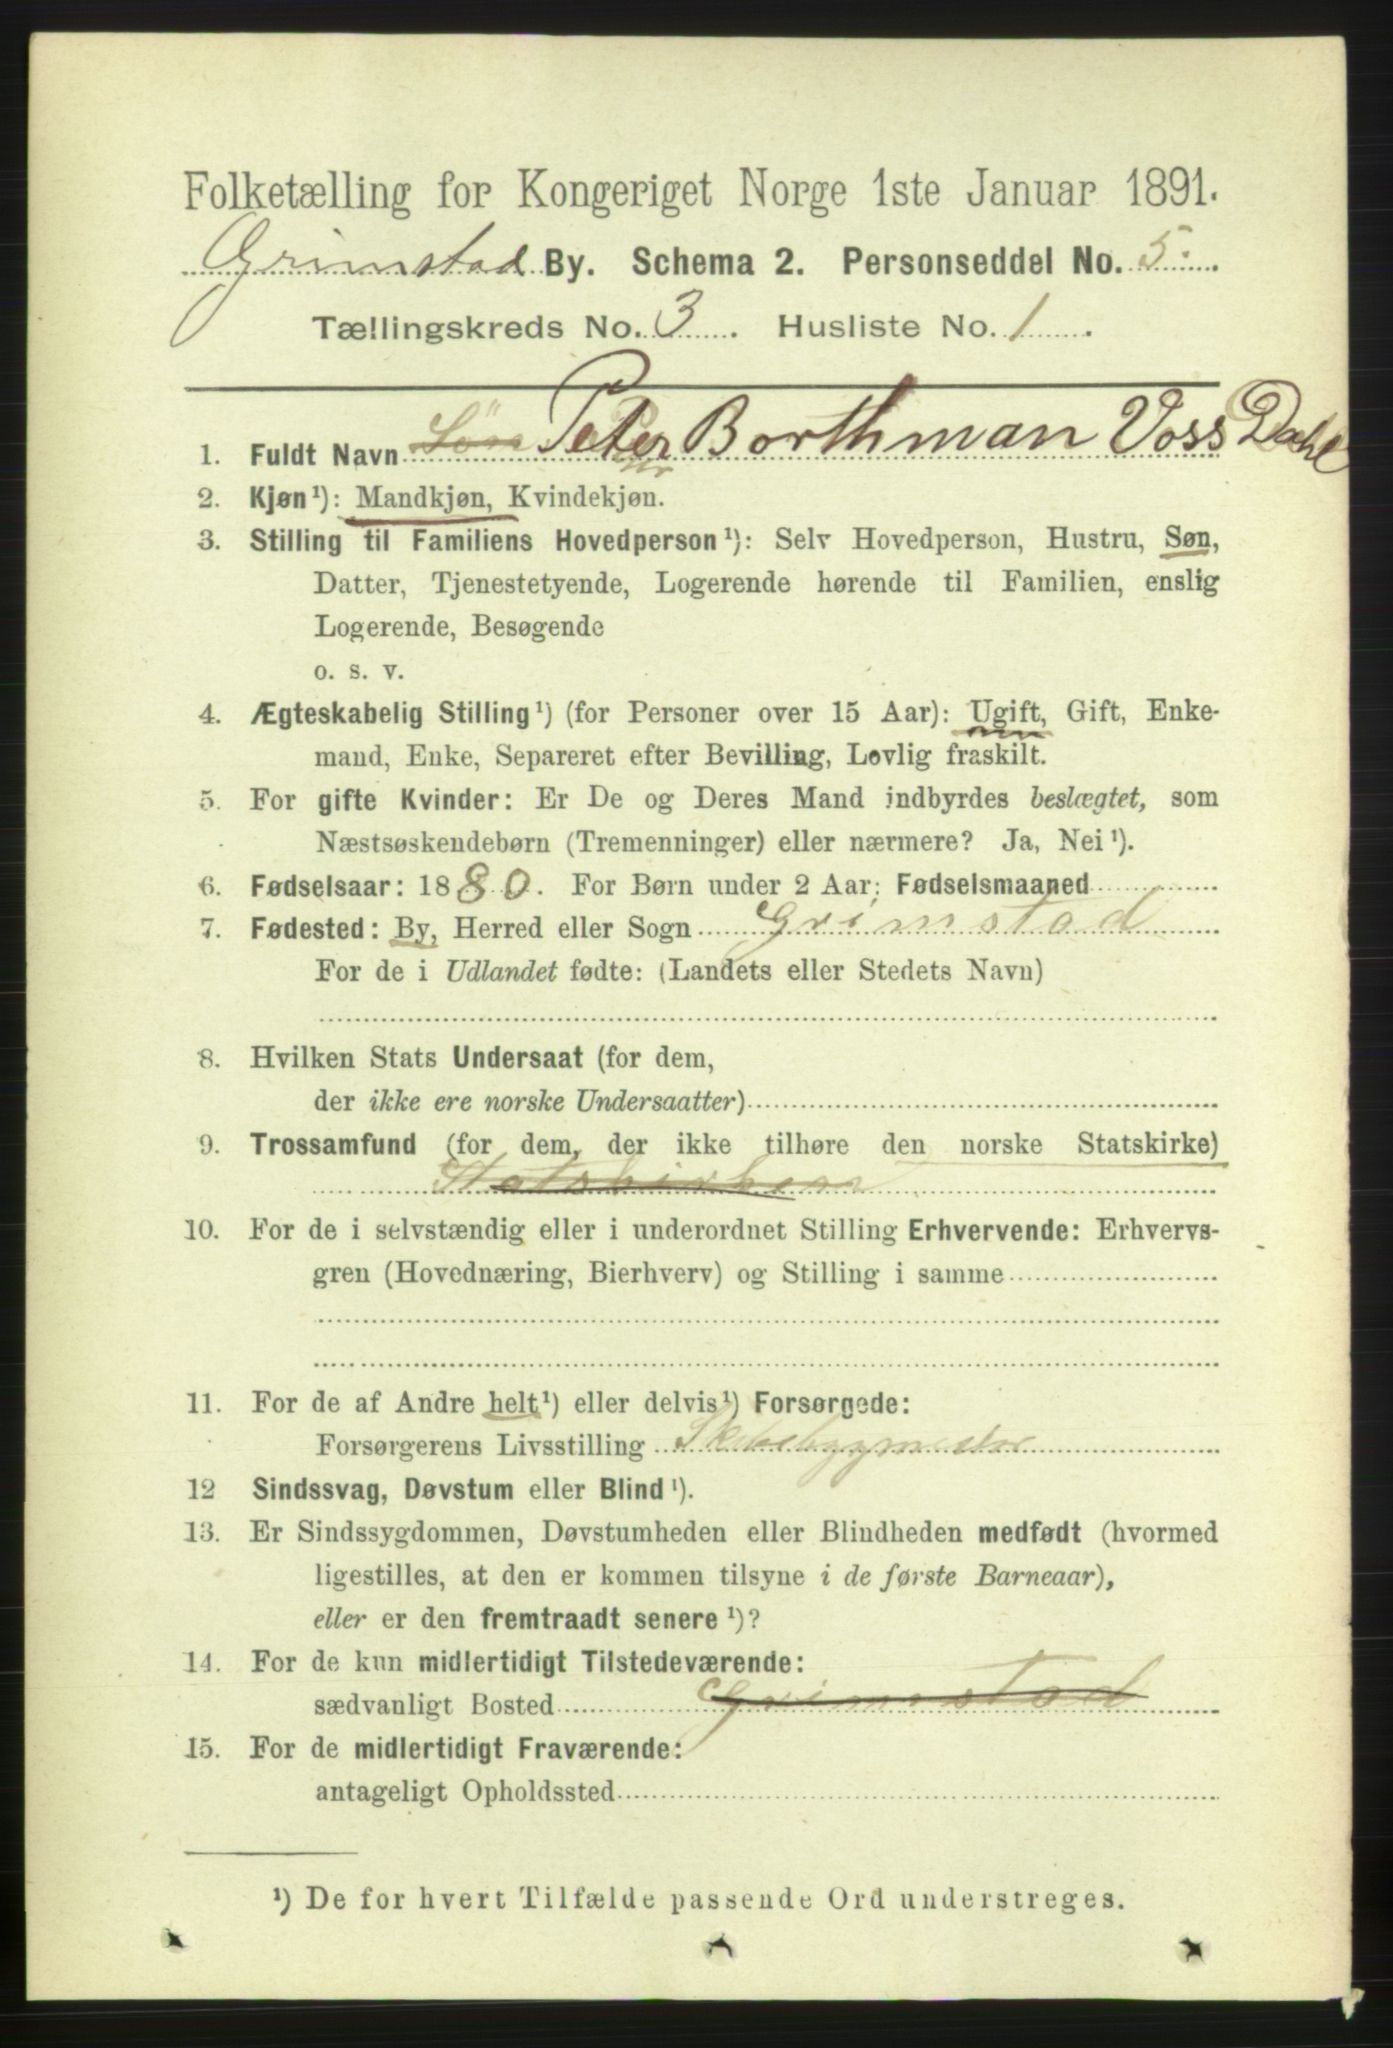 Folketælling for Kongeriget Norge 1ste Januar 1891.
Grimstad By. Schema 2. Personseddel No. 5.
Tællingskreds No. 3. Husliste No. 1.
1. Fuldt Navn Søn Peter Borthman Voss Dahl
2. Kjøn¹): Mandkjøn, Kvindekjøn.
3. Stilling til Familiens Hovedperson¹): Selv Hovedperson, Hustru, Søn,
Datter, Tjenestetyende, Logerende hørende til Familien, enslig
Logerende, Besøgende
o. s. v.
4. Ægteskabelig Stilling¹) (for Personer over 15 Aar): Ugift, Gift, Enke-
mand, Enke, Separeret efter Bevilling, Lovlig fraskilt.
5. For gifte Kvinder: Er De og Deres Mand indbyrdes beslægtet, som
Næstsøskendebørn (Tremenninger) eller nærmere? Ja, Nei¹).
6. Fødselsaar: 1880. For Børn under 2 Aar: Fødselsmaaned
7. Fødested: By, Herred eller Sogn Grimstad
For de i Udlandet fødte: (Landets eller Stedets Navn)
8. Hvilken Stats Undersaat (for dem,
der ikke ere norske Undersaatter)
9. Trossamfund (for dem, der ikke tilhøre den norske Statskirke)
Statskirken
10. For de i selvstændig eller i underordnet Stilling Erhvervende: Erhvervs-
gren (Hovednæring, Bierhverv) og Stilling i samme
11. For de af Andre helt¹) eller delvis¹) Forsørgede:
Forsørgerens Livsstilling Skibsbygmester
12 Sindssvag, Døvstum eller Blind¹).
13. Er Sindssygdommen, Døvstumheden eller Blindheden medfødt (hvormed
ligestilles, at den er kommen tilsyne i de første Barneaar),
eller er den fremtraadt senere¹)?
14. For de kun midlertidigt Tilstedeværende:
sædvanligt Bosted Grimstad
15. For de midlertidigt Fraværende:
antageligt Opholdssted
¹) De for hvert Tilfælde passende Ord understreges.